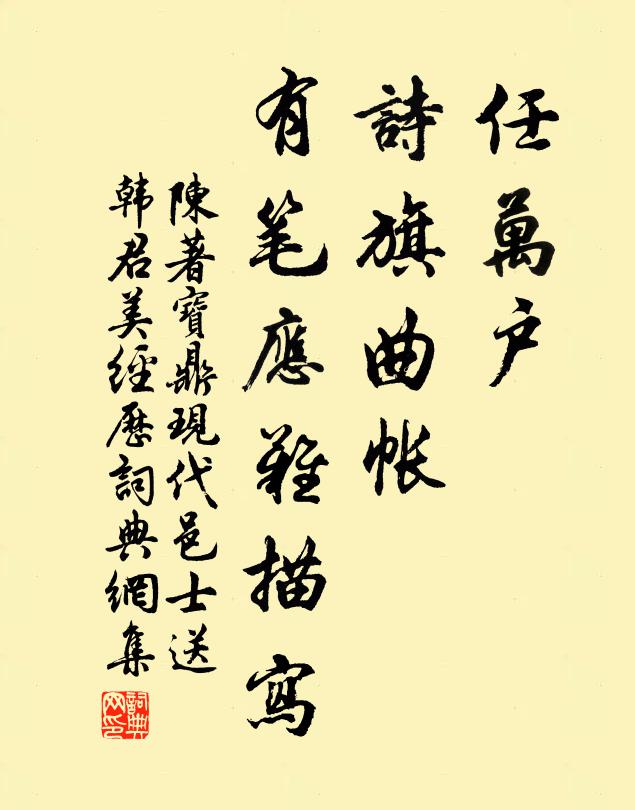 任萬户
詩旗曲帐
有笔應難描寫
陳著寶鼎現代邑士送
韩君美經歷詞典網集
詞典
网印